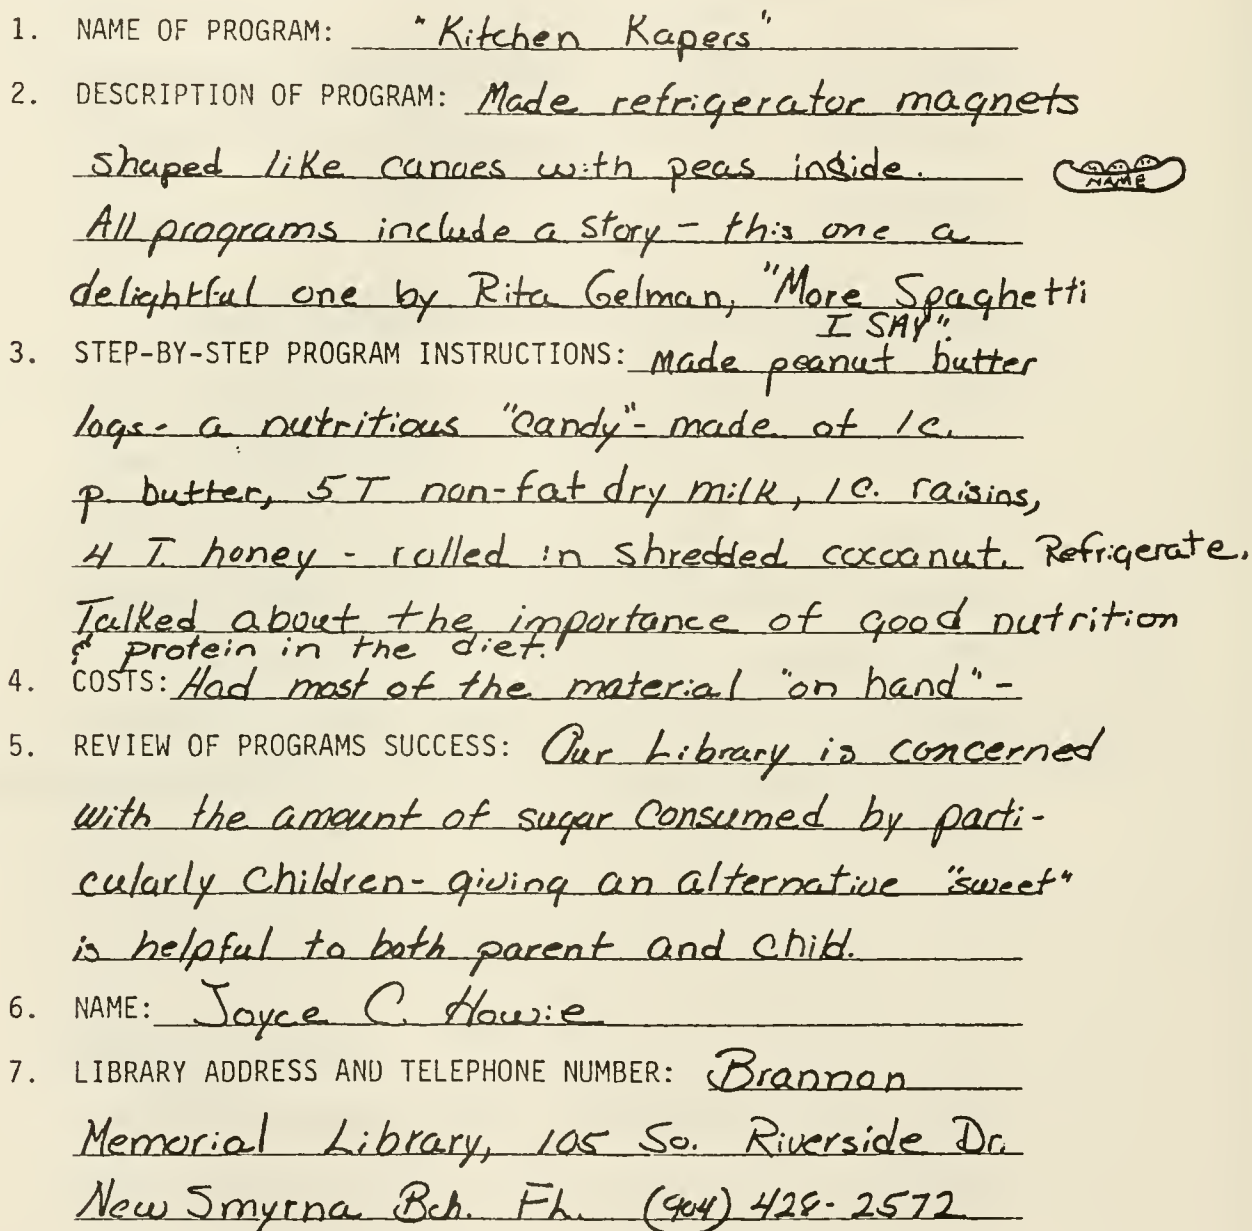 1. NAME OF PROGRAM: "Kitchen Kapers"
2. DESCRIPTION OF PROGRAM: Made refrigerator magnets
shaped like canoes with peas inside.
NAME
All programs include a story - this one a
delightful one by Rita Gelman, "More Spaghetti
I SAY".
3. STEP-BY-STEP PROGRAM INSTRUCTIONS: Made peanut butter
logs - a nutritious "candy" - made of 1 c.
p. butter, 5 T non-fat dry milk, 1 c. raisins,
4 T. honey - rolled in shredded cocoanut. Refrigerate.
Talked about the importance of good nutrition
& protein in the diet.
4. COSTS: Had most of the material "on hand" -
5. REVIEW OF PROGRAMS SUCCESS: Our Library is concerned
with the amount of sugar consumed by parti-
cularly children - giving an alternative "sweet"
is helpful to both parent and child.
6. NAME: Joyce C. Howie
7. LIBRARY ADDRESS AND TELEPHONE NUMBER: Brannon
Memorial Library, 105 So. Riverside Dr.
New Smyrna Bch. Fl. (904) 428-2572